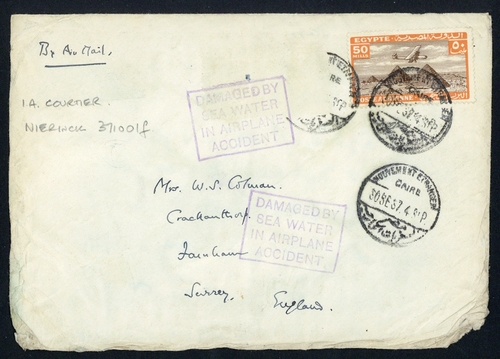 By Air Mail.
EGYPTE
50
MILLS
٥٠
I.A. COURTIER.
NIERINCK 371001f
DAMAGED BY
SEA WATER
IN AIRPLANE
ACCIDENT.
CAIRE
MOUVEMENT ETRANGER
CAIRE
30 SE 37. 4
Mrs. W. S. Colman.
Crackanthorp.
Farnham
Surrey,
England.
DAMAGED BY
SEA WATER
IN AIRPLANE
ACCIDENT.